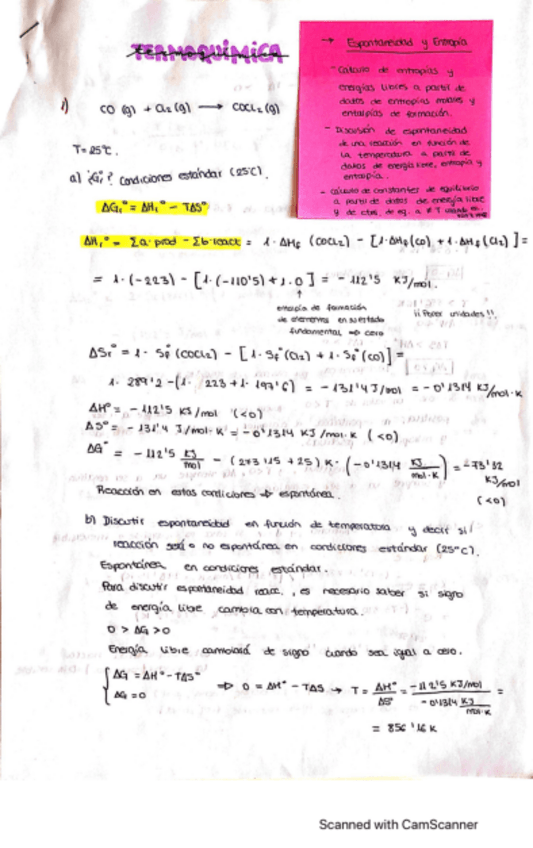 TERMOQUÍMICA
→ Espontaneidad y Entropía
- Cálculo de entropías y
energías libres a partir de
datos de entropías molares y
entalpías de formación.
- Discusión de espontaneidad
de una reacción en función de
la temperatura a partir de
datos de energía libre, entropía y
entalpía.
- Cálculo de constantes de equilibrio
a partir de datos de energía libre
y de ctes. de eq. a ≠ T
1) CO (g) + Cl2 (g) → COCl2 (g)
T = 25℃.
a) ¿Gr? Condiciones estándar (25℃).
ΔGr° = ΔHr° - TΔS°
ΔHr° = Σa· prod - Σb·react = 1·ΔHf (COCl2) - [1·ΔHf(CO) + 1·ΔHf(Cl2)] =
= 1·(-223) - [1·(-110'5) + 1·0] = -112'5 KJ/mol.
↑
entalpía de formación
de elementos en su estado
fundamental ⇒ cero
¡¡ Poner unidades !!
ΔSr° = 1· Sf° (COCl2) - [1· Sf° (Cl2) + 1· Sf° (CO)] =
1· 289'2 - (1· 223 + 1· 197'6) = -131'4 J/mol = -0'1314 KJ/mol·K
ΔH° = -112'5 KJ/mol (<0)
ΔS° = -131'4 J/mol·K = -0'1314 KJ/mol·K (<0)
ΔG° = -112'5 KJ/mol - (273'15 + 25) K · (-0'1314 KJ/mol·K) = -73'32 KJ/mol
(<0)
Reacción en estas condiciones ⇒ espontánea.
b) Discutir espontaneidad en función de temperatura y decir si
reacción será o no espontánea en condiciones estándar (25ºC).
Espontánea en condiciones estándar.
Para discutir espontaneidad reacc., es necesario saber si signo
de energía libre cambia con temperatura.
0 > ΔG > 0
Energía libre cambiará de signo cuando sea igual a cero.
{ ΔG = ΔH° - TΔS°
ΔG = 0
⇒ 0 = ΔH° - TΔS → T = ΔH°/ΔS° = -112'5 KJ/mol / -0'1314 KJ/mol·K =
= 856'16 K
Scanned with CamScanner